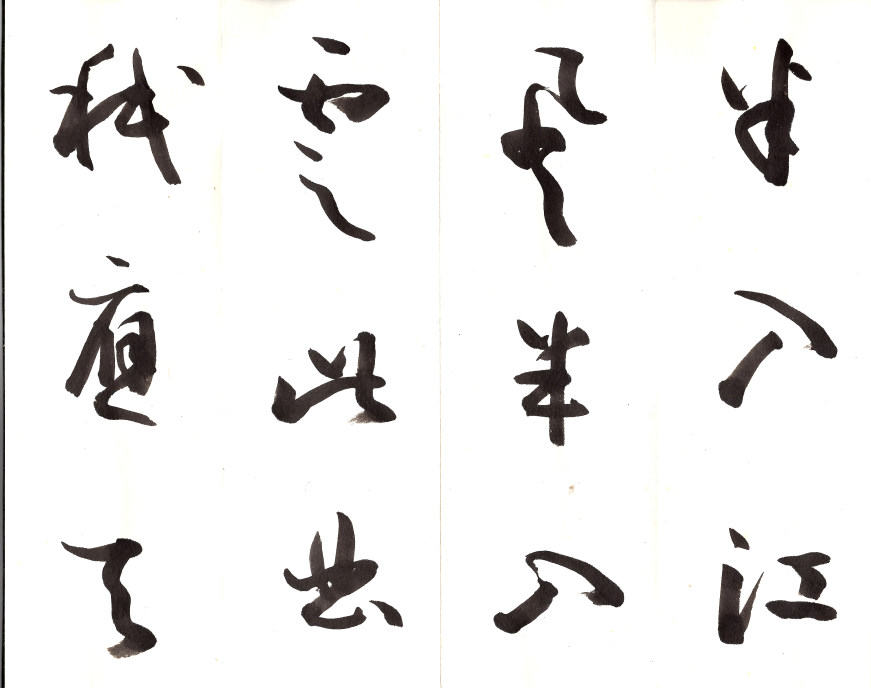 半入江
風半入
雲此曲
祇應天